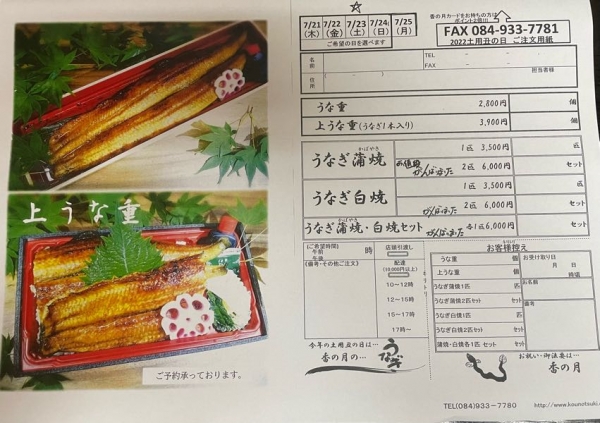 上うな重
ご予約承っております。
7/21 7/22 7/23 7/24 7/25
(木) (金) (土) (日) (月)
ご希望の日を選べます
香の月カードをお持ちの方は
ポイント2倍!!
FAX 084-933-7781
2022土用丑の日 ご注文用紙
名前
TEL － －
FAX － －
住所
(　－　)
担当者様
うな重 2,800円 個
上うな重(うなぎ1本入り) 3,900円 個
うなぎ蒲焼 かばやき
1匹 3,500円 匹
お値段がんばった 2匹 6,000円 セット
うなぎ白焼
1匹 3,500円 匹
がんばった 2匹 6,000円 セット
うなぎ蒲焼・白焼セット かばやき
がんばった 各1匹 6,000円 セット
(ご希望時間)
午前
午後
時
(備考・その他ご注文)
店頭引渡し
配達
(10,000円以上)
10～12時
12～15時
15～17時
17時～
お客様控え
うな重 個
上うな重 個
うなぎ蒲焼1匹 匹
うなぎ蒲焼2匹セット セット
うなぎ白焼1匹 匹
うなぎ白焼2匹セット セット
蒲焼・白焼各1匹 セット セット
お受け取り日
月 日
時頃
お名前
備考
今年の土用丑の日は…
香の月の…
うなぎ
お祝い・御法要は…
香の月
TEL(084)933-7780